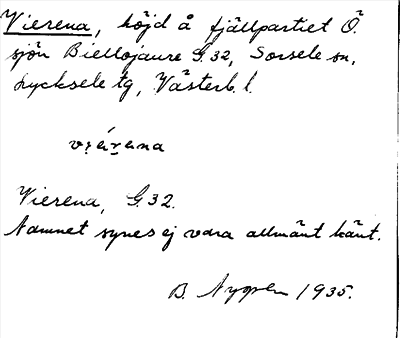 Vierena, höjd å fjällpartiet Ö.
sjön Biellojaure G.32, Sorsele sn,
Lycksele tg, Västerb. l.
vịẹ́rẹna
Vierena, G.32.
Namnet synes ej vara allmänt känt.
B. 1935.